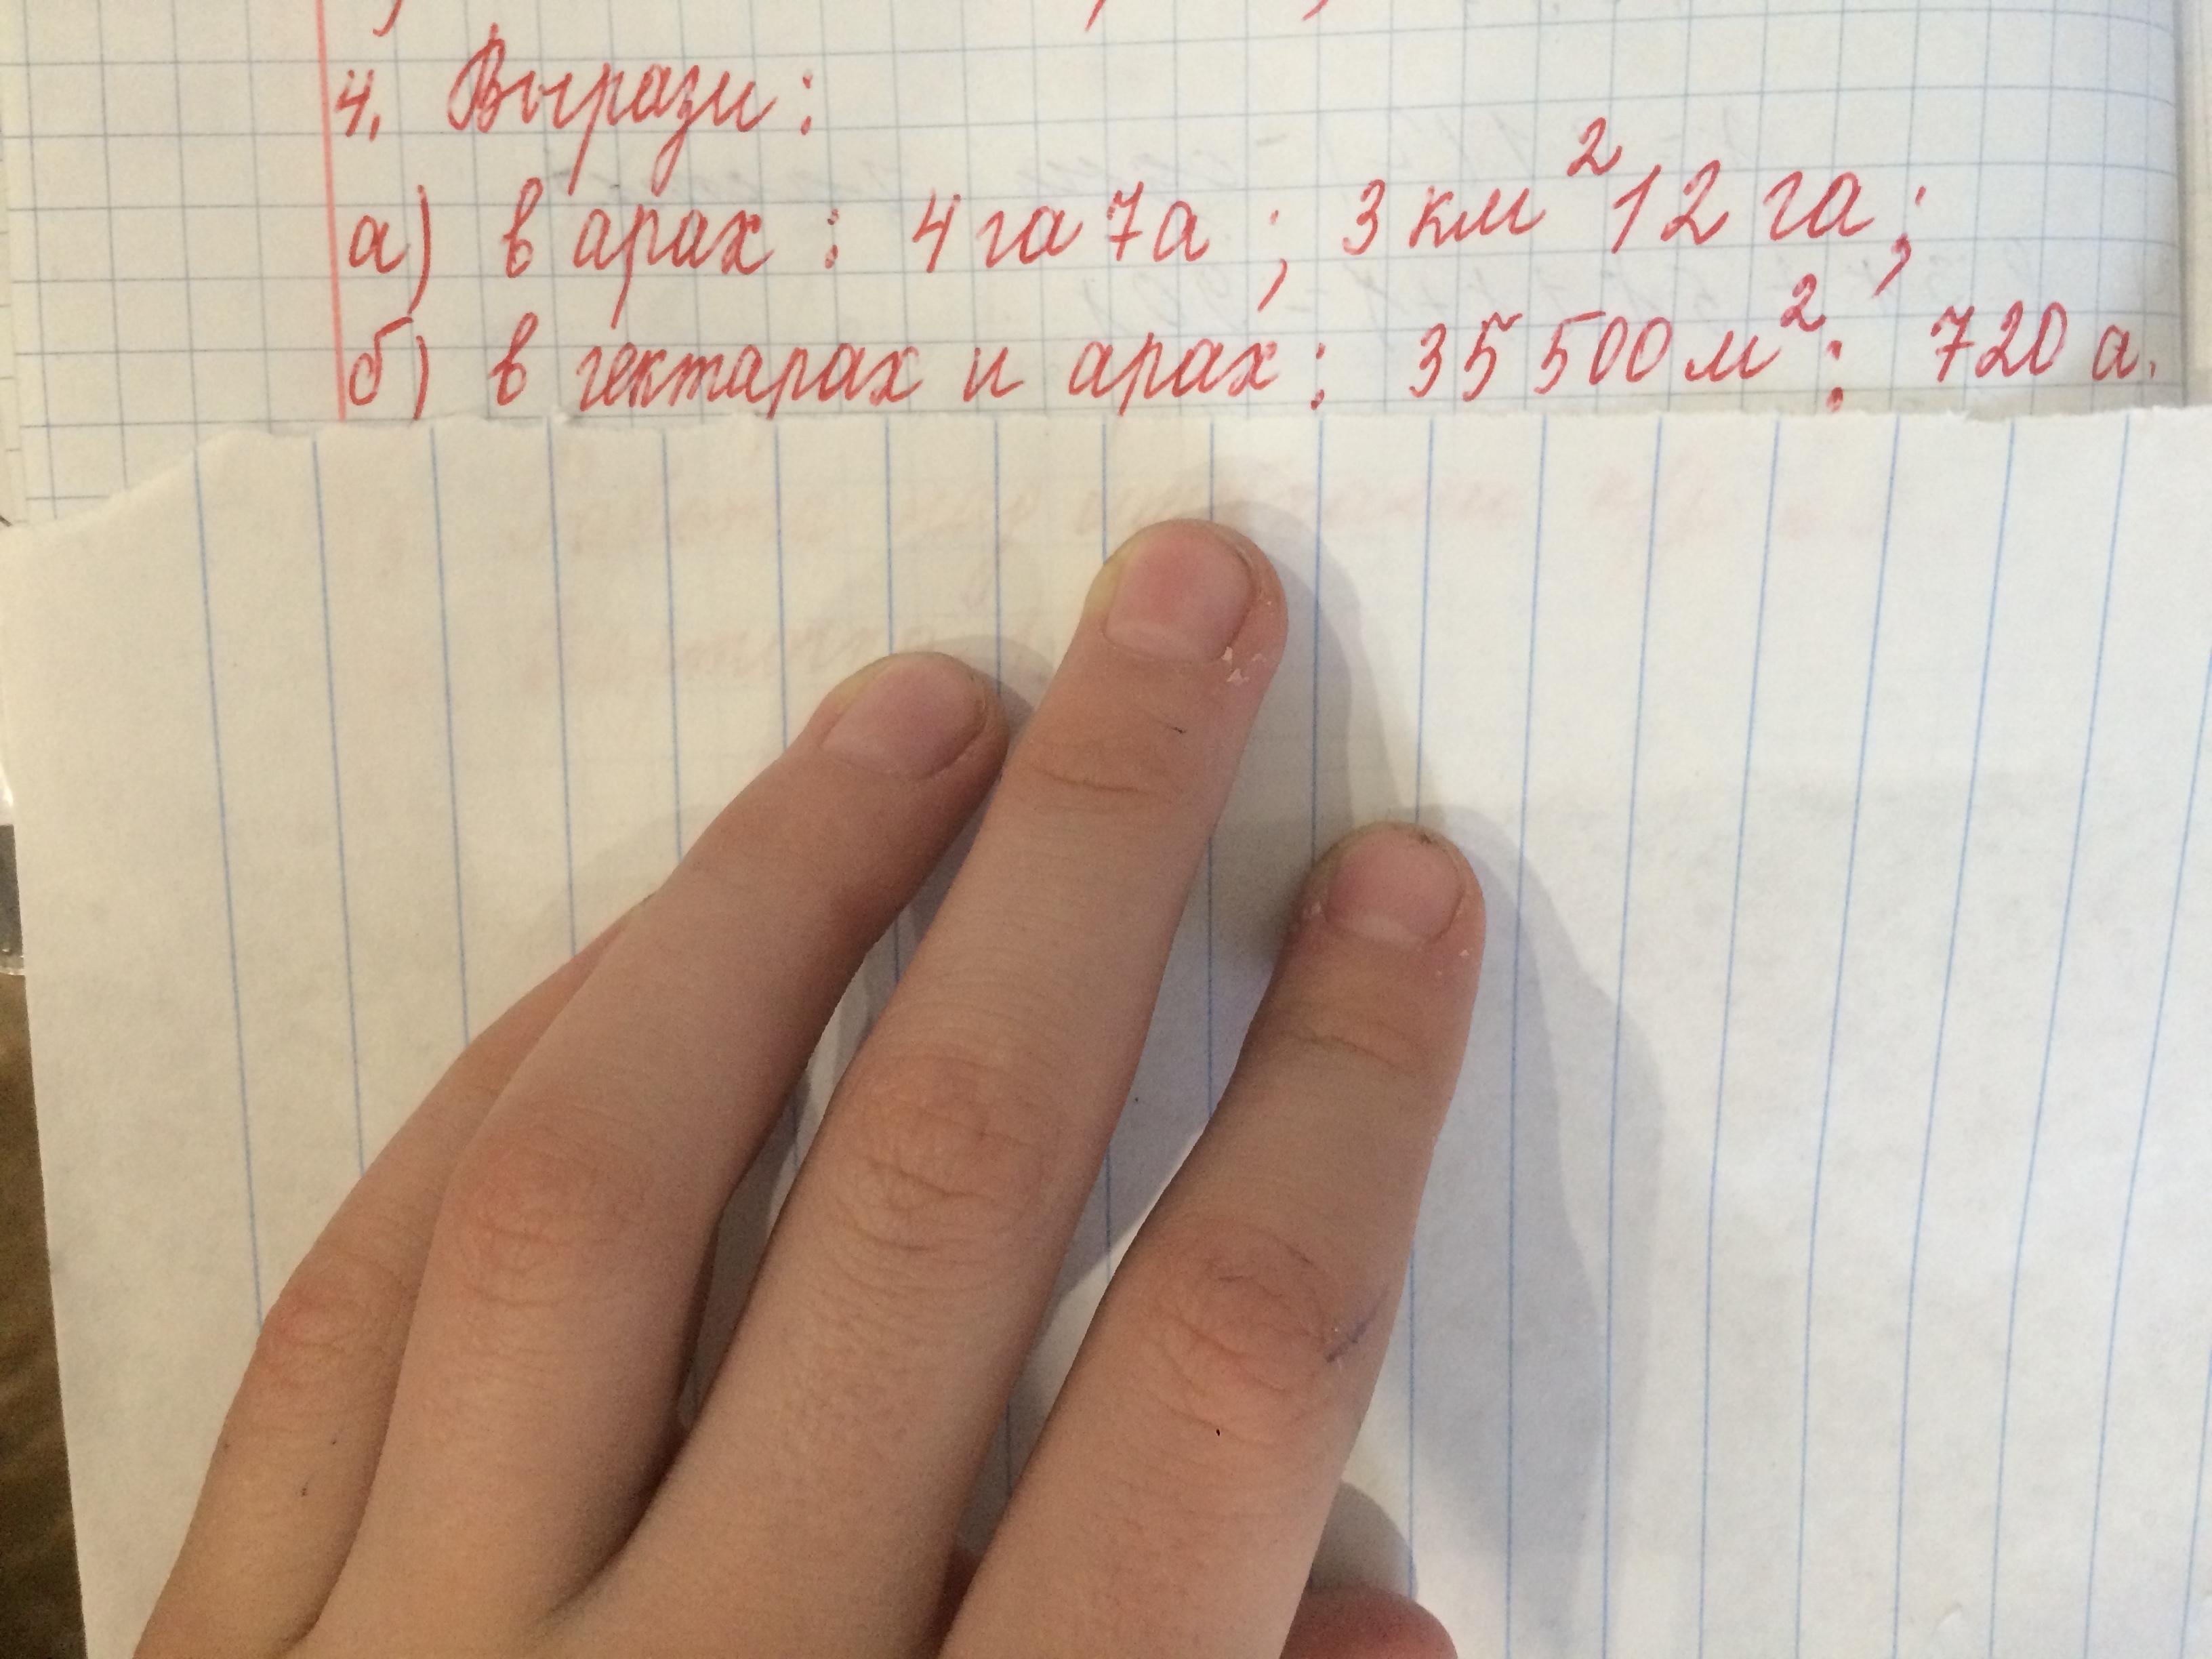 4. Вырази:
а) в арах: 4 га 7 а; 3 км² 12 га;
б) в гектарах и арах: 35 500 м²; 720 а.